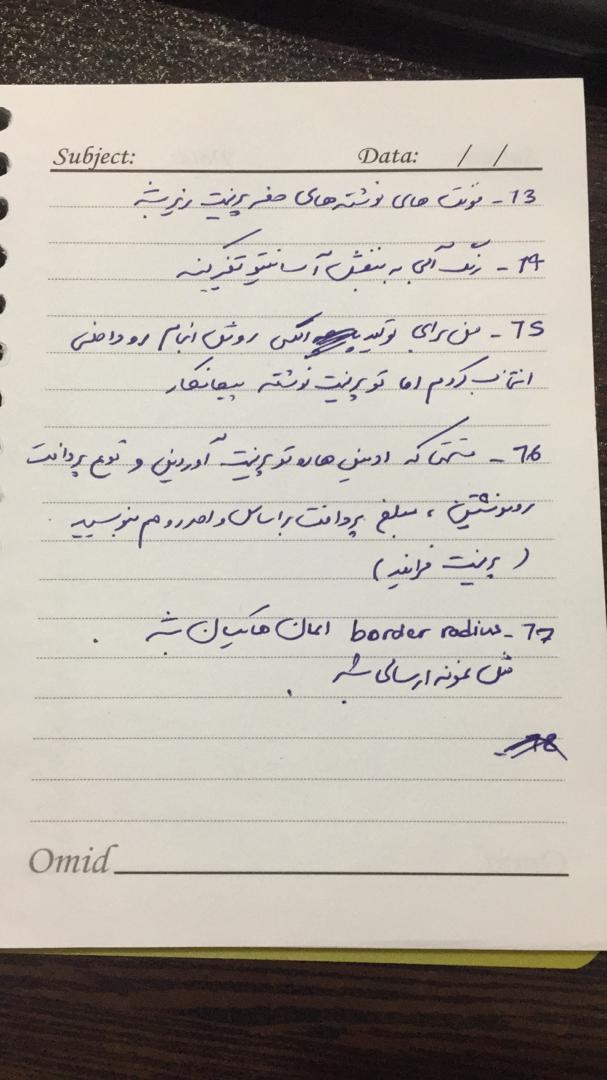 Subject: Data: / /
13- فونت های نوشته‌های صفحه پرینت ریزتر بشه
14- رنگ آبی به بنفش آسانتیتو تغییر کنه
15- من برای تولید انگی روش انجام رو داخلی
انتخاب کردم اما تو پرینت نوشته پیمانکار
16- قسمتی که ادمین ها رو تو پرینت آوردین و نوع پرداخت
رو نوشتین، مبلغ پرداخت براساس واحد رو هم بنویسید
(پرینت فرایند)
17- border radius المان ها یکسان بشه.
مثل نمونه ارسالی بشه.
Omid